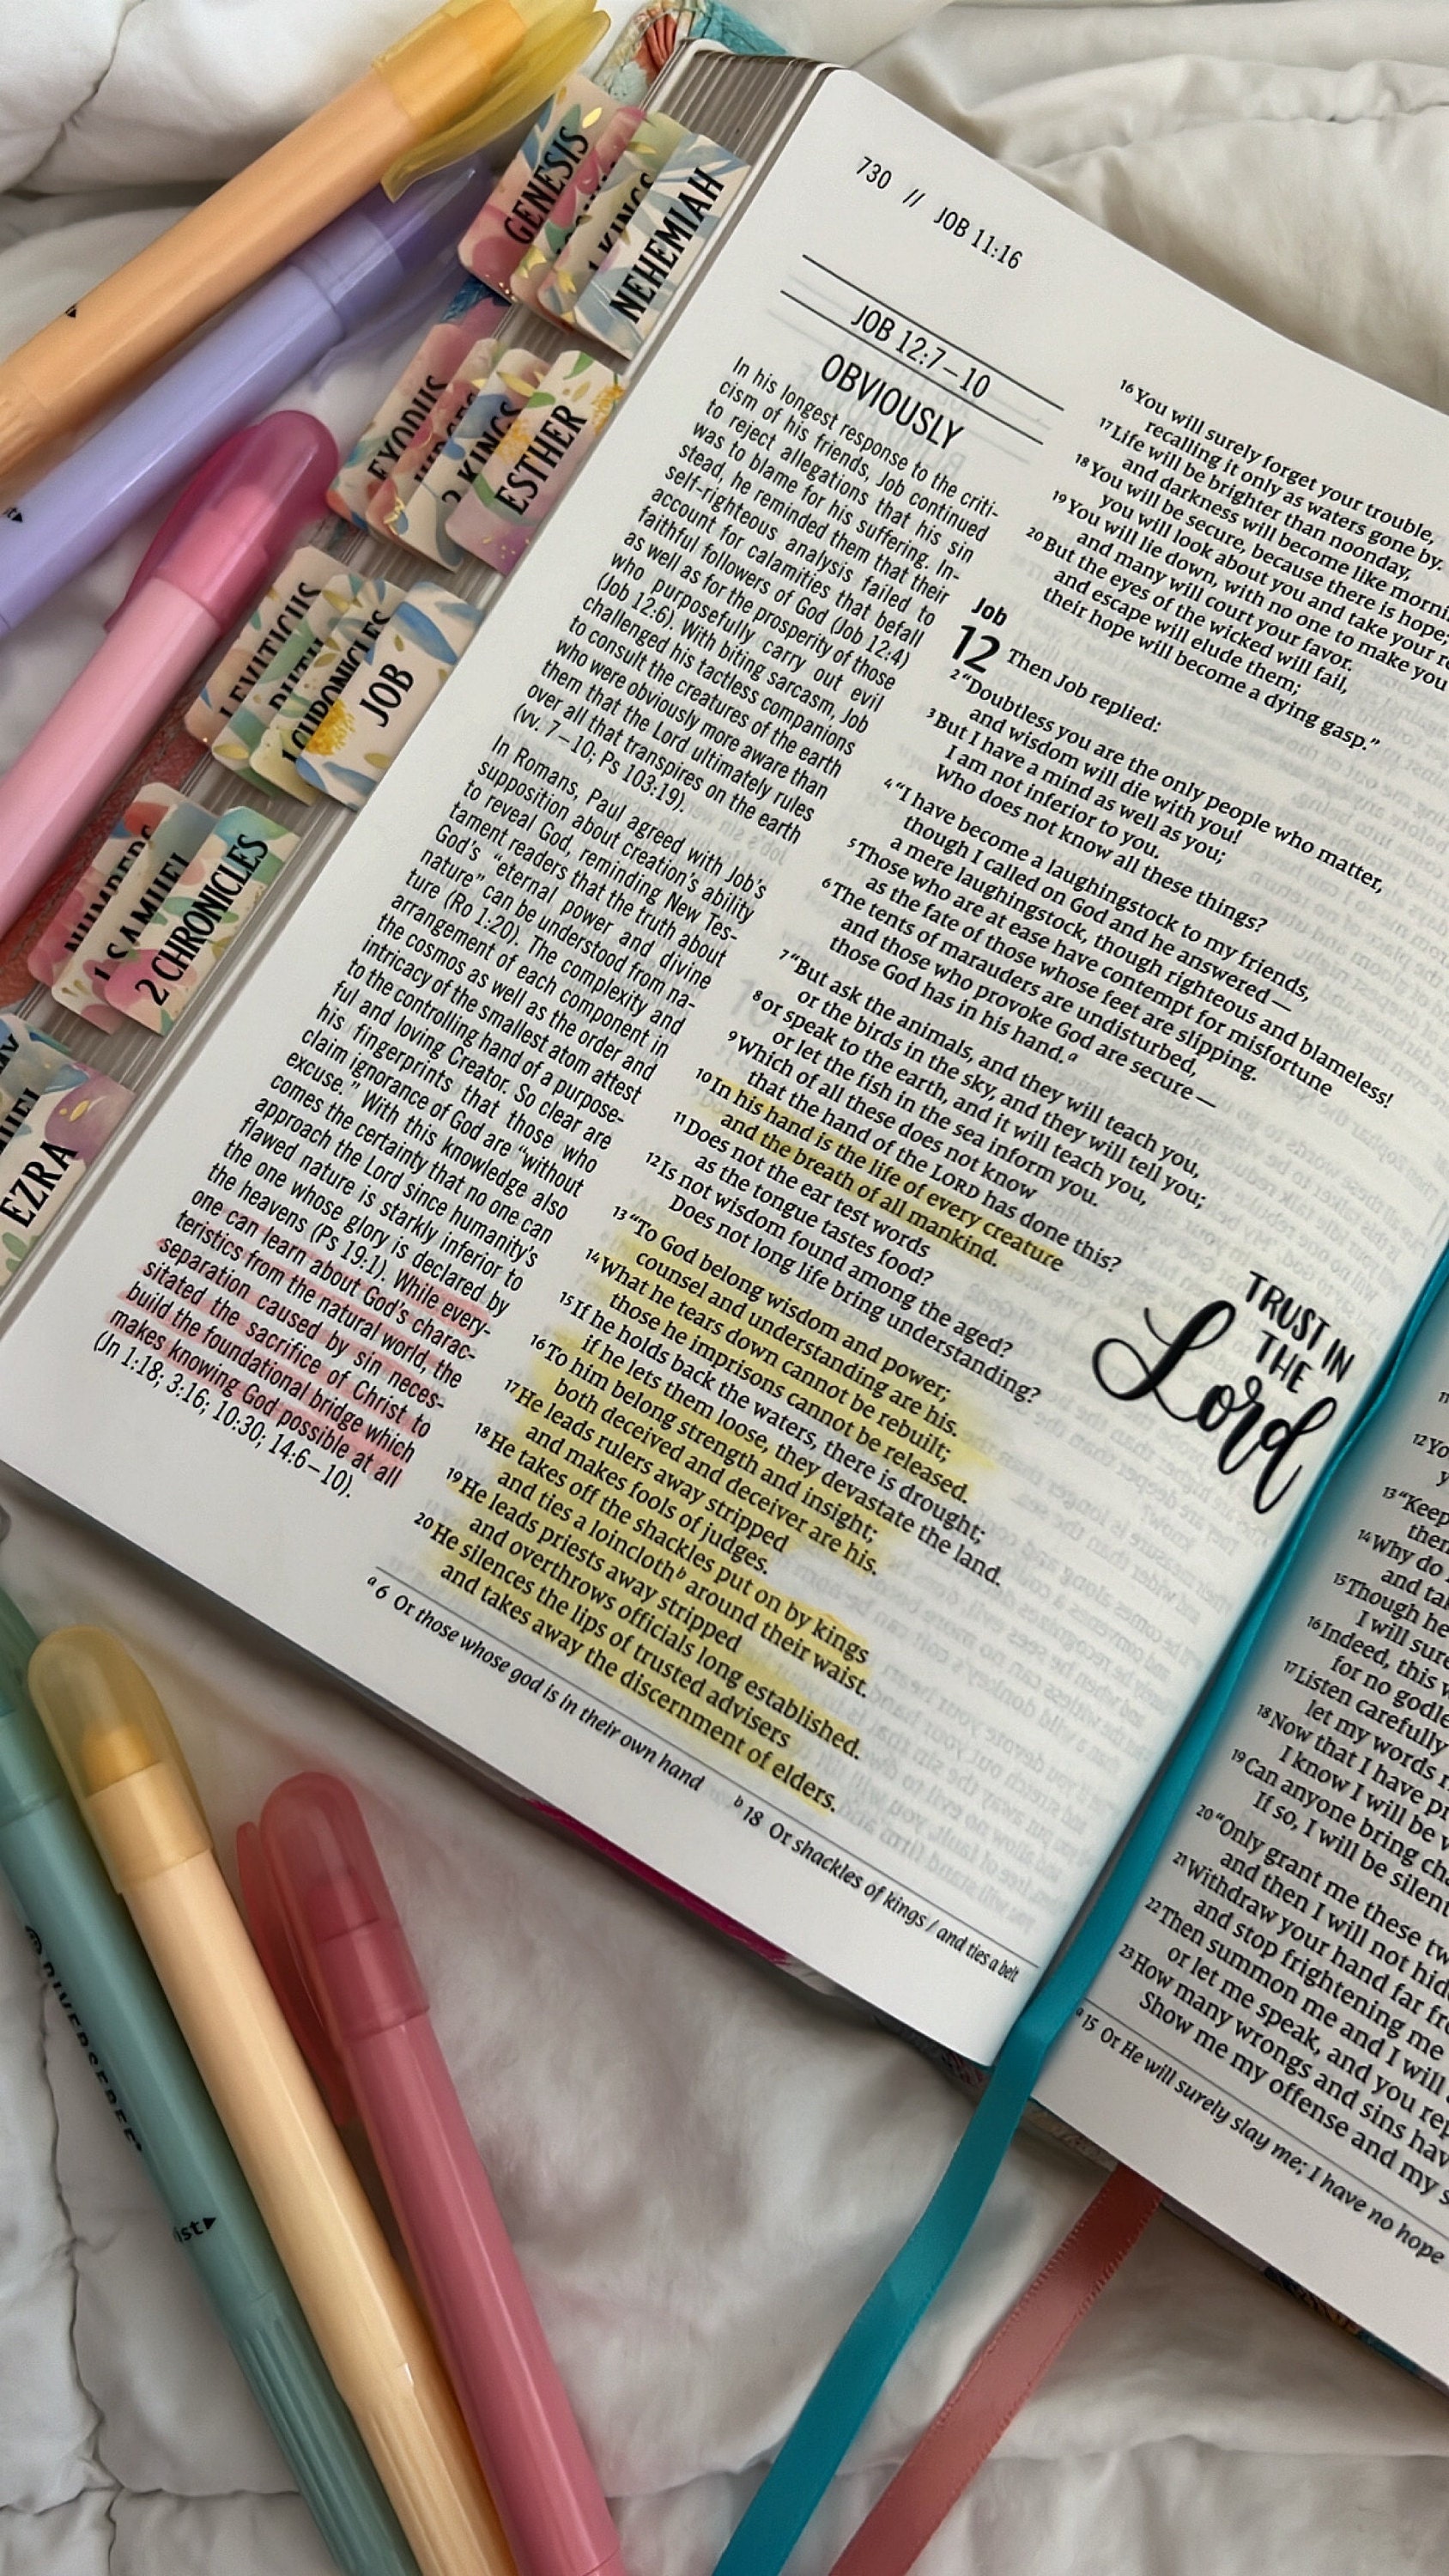 GENESIS
1 KINGS
NEHEMIAH
EXODUS
2 KINGS
ESTHER
LEVITICUS
RUTH
1 CHRONICLES
JOB
NUMBERS
1 SAMUEL
2 CHRONICLES
EZRA
730 // JOB 11:16
JOB 12:7–10
OBVIOUSLY
In his longest response to the criti-
cism of his friends, Job continued
to reject allegations that his sin
was to blame for his suffering. In-
stead, he reminded them that their
self-righteous analysis failed to
account for calamities that befall
faithful followers of God (Job 12:4)
as well as for the prosperity of those
who purposefully carry out evil
(Job 12:6). With biting sarcasm, Job
challenged his tactless companions
to consult the creatures of the earth
who were obviously more aware than
them that the Lord ultimately rules
over all that transpires on the earth
(vv. 7–10; Ps 103:19).
In Romans, Paul agreed with Job's
supposition about creation's ability
to reveal God, reminding New Tes-
tament readers that the truth about
God's “eternal power and divine
nature” can be understood from na-
ture (Ro 1:20). The complexity and
arrangement of each component in
the cosmos as well as the order and
intricacy of the smallest atom attest
to the controlling hand of a purpose-
ful and loving Creator. So clear are
his fingerprints that those who
claim ignorance of God are “without
excuse.” With this knowledge also
comes the certainty that no one can
approach the Lord since humanity's
flawed nature is starkly inferior to
the one whose glory is declared by
the heavens (Ps 19:1). While every-
one can learn about God's charac-
teristics from the natural world, the
separation caused by sin neces-
sitated the sacrifice of Christ to
build the foundational bridge which
makes knowing God possible at all
(Jn 1:18; 3:16; 10:30; 14:6–10).
16 You will surely forget your trouble,
recalling it only as waters gone by.
17 Life will be brighter than noonday,
and darkness will become like morni
18 You will be secure, because there is hope;
you will look about you and take your re
19 You will lie down, with no one to make you
and many will court your favor.
20 But the eyes of the wicked will fail,
and escape will elude them;
their hope will become a dying gasp.”
Job
12 Then Job replied:
2 “Doubtless you are the only people who matter,
and wisdom will die with you!
3 But I have a mind as well as you;
I am not inferior to you.
Who does not know all these things?
4 “I have become a laughingstock to my friends,
though I called on God and he answered—
a mere laughingstock, though righteous and blameless!
5 Those who are at ease have contempt for misfortune
as the fate of those whose feet are slipping.
6 The tents of marauders are undisturbed,
and those who provoke God are secure—
those God has in his hand.a
7 “But ask the animals, and they will teach you,
or the birds in the sky, and they will tell you;
8 or speak to the earth, and it will teach you,
or let the fish in the sea inform you.
9 Which of all these does not know
that the hand of the LORD has done this?
10 In his hand is the life of every creature
and the breath of all mankind.
11 Does not the ear test words
as the tongue tastes food?
12 Is not wisdom found among the aged?
Does not long life bring understanding?
13 “To God belong wisdom and power;
counsel and understanding are his.
14 What he tears down cannot be rebuilt;
those he imprisons cannot be released.
15 If he holds back the waters, there is drought;
if he lets them loose, they devastate the land.
16 To him belong strength and insight;
both deceived and deceiver are his.
17 He leads rulers away stripped
and makes fools of judges.
18 He takes off the shackles put on by kings
and ties a loinclothb around their waist.
19 He leads priests away stripped
and overthrows officials long established.
20 He silences the lips of trusted advisers
and takes away the discernment of elders.
TRUST IN
THE
Lord
a 6 Or those whose god is in their own hand b 18 Or shackles of kings / and ties a belt
12 Yo
13 “Keep
then
14 Why do
and tak
15 Though he
I will sure
16 Indeed, this w
for no godle
17 Listen carefully
let my words r
18 Now that I have pr
I know I will be v
19 Can anyone bring cha
If so, I will be silent
20 “Only grant me these tw
and then I will not hid
21 Withdraw your hand far fro
and stop frightening me
22 Then summon me and I will
or let me speak, and you rep
23 How many wrongs and sins hav
Show me my offense and my s
a 15 Or He will surely slay me; I have no hope